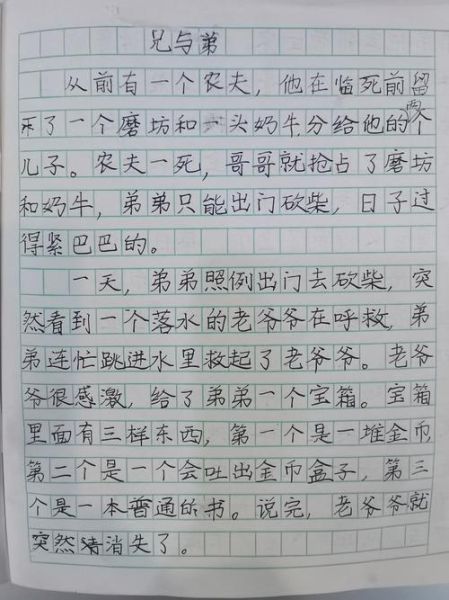 兄与弟
从前有一个农夫，他在临死前留
下了一个磨坊和一头奶牛分给他的两个
儿子。农夫一死，哥哥就抢占了磨坊
和奶牛，弟弟只能出门砍柴，日子过
得紧巴巴的。
一天，弟弟照例出门去砍柴，突
然看到一个落水的老爷爷在呼救，弟
弟连忙跳进水里救起了老爷爷。老爷
爷很感激，给了弟弟一个宝箱。宝箱
里面有三样东西，第一个是一堆金币，
第二个是一个会吐出金币盒子，第三
个是一本普通的书。说完，老爷爷就
突然消失了。